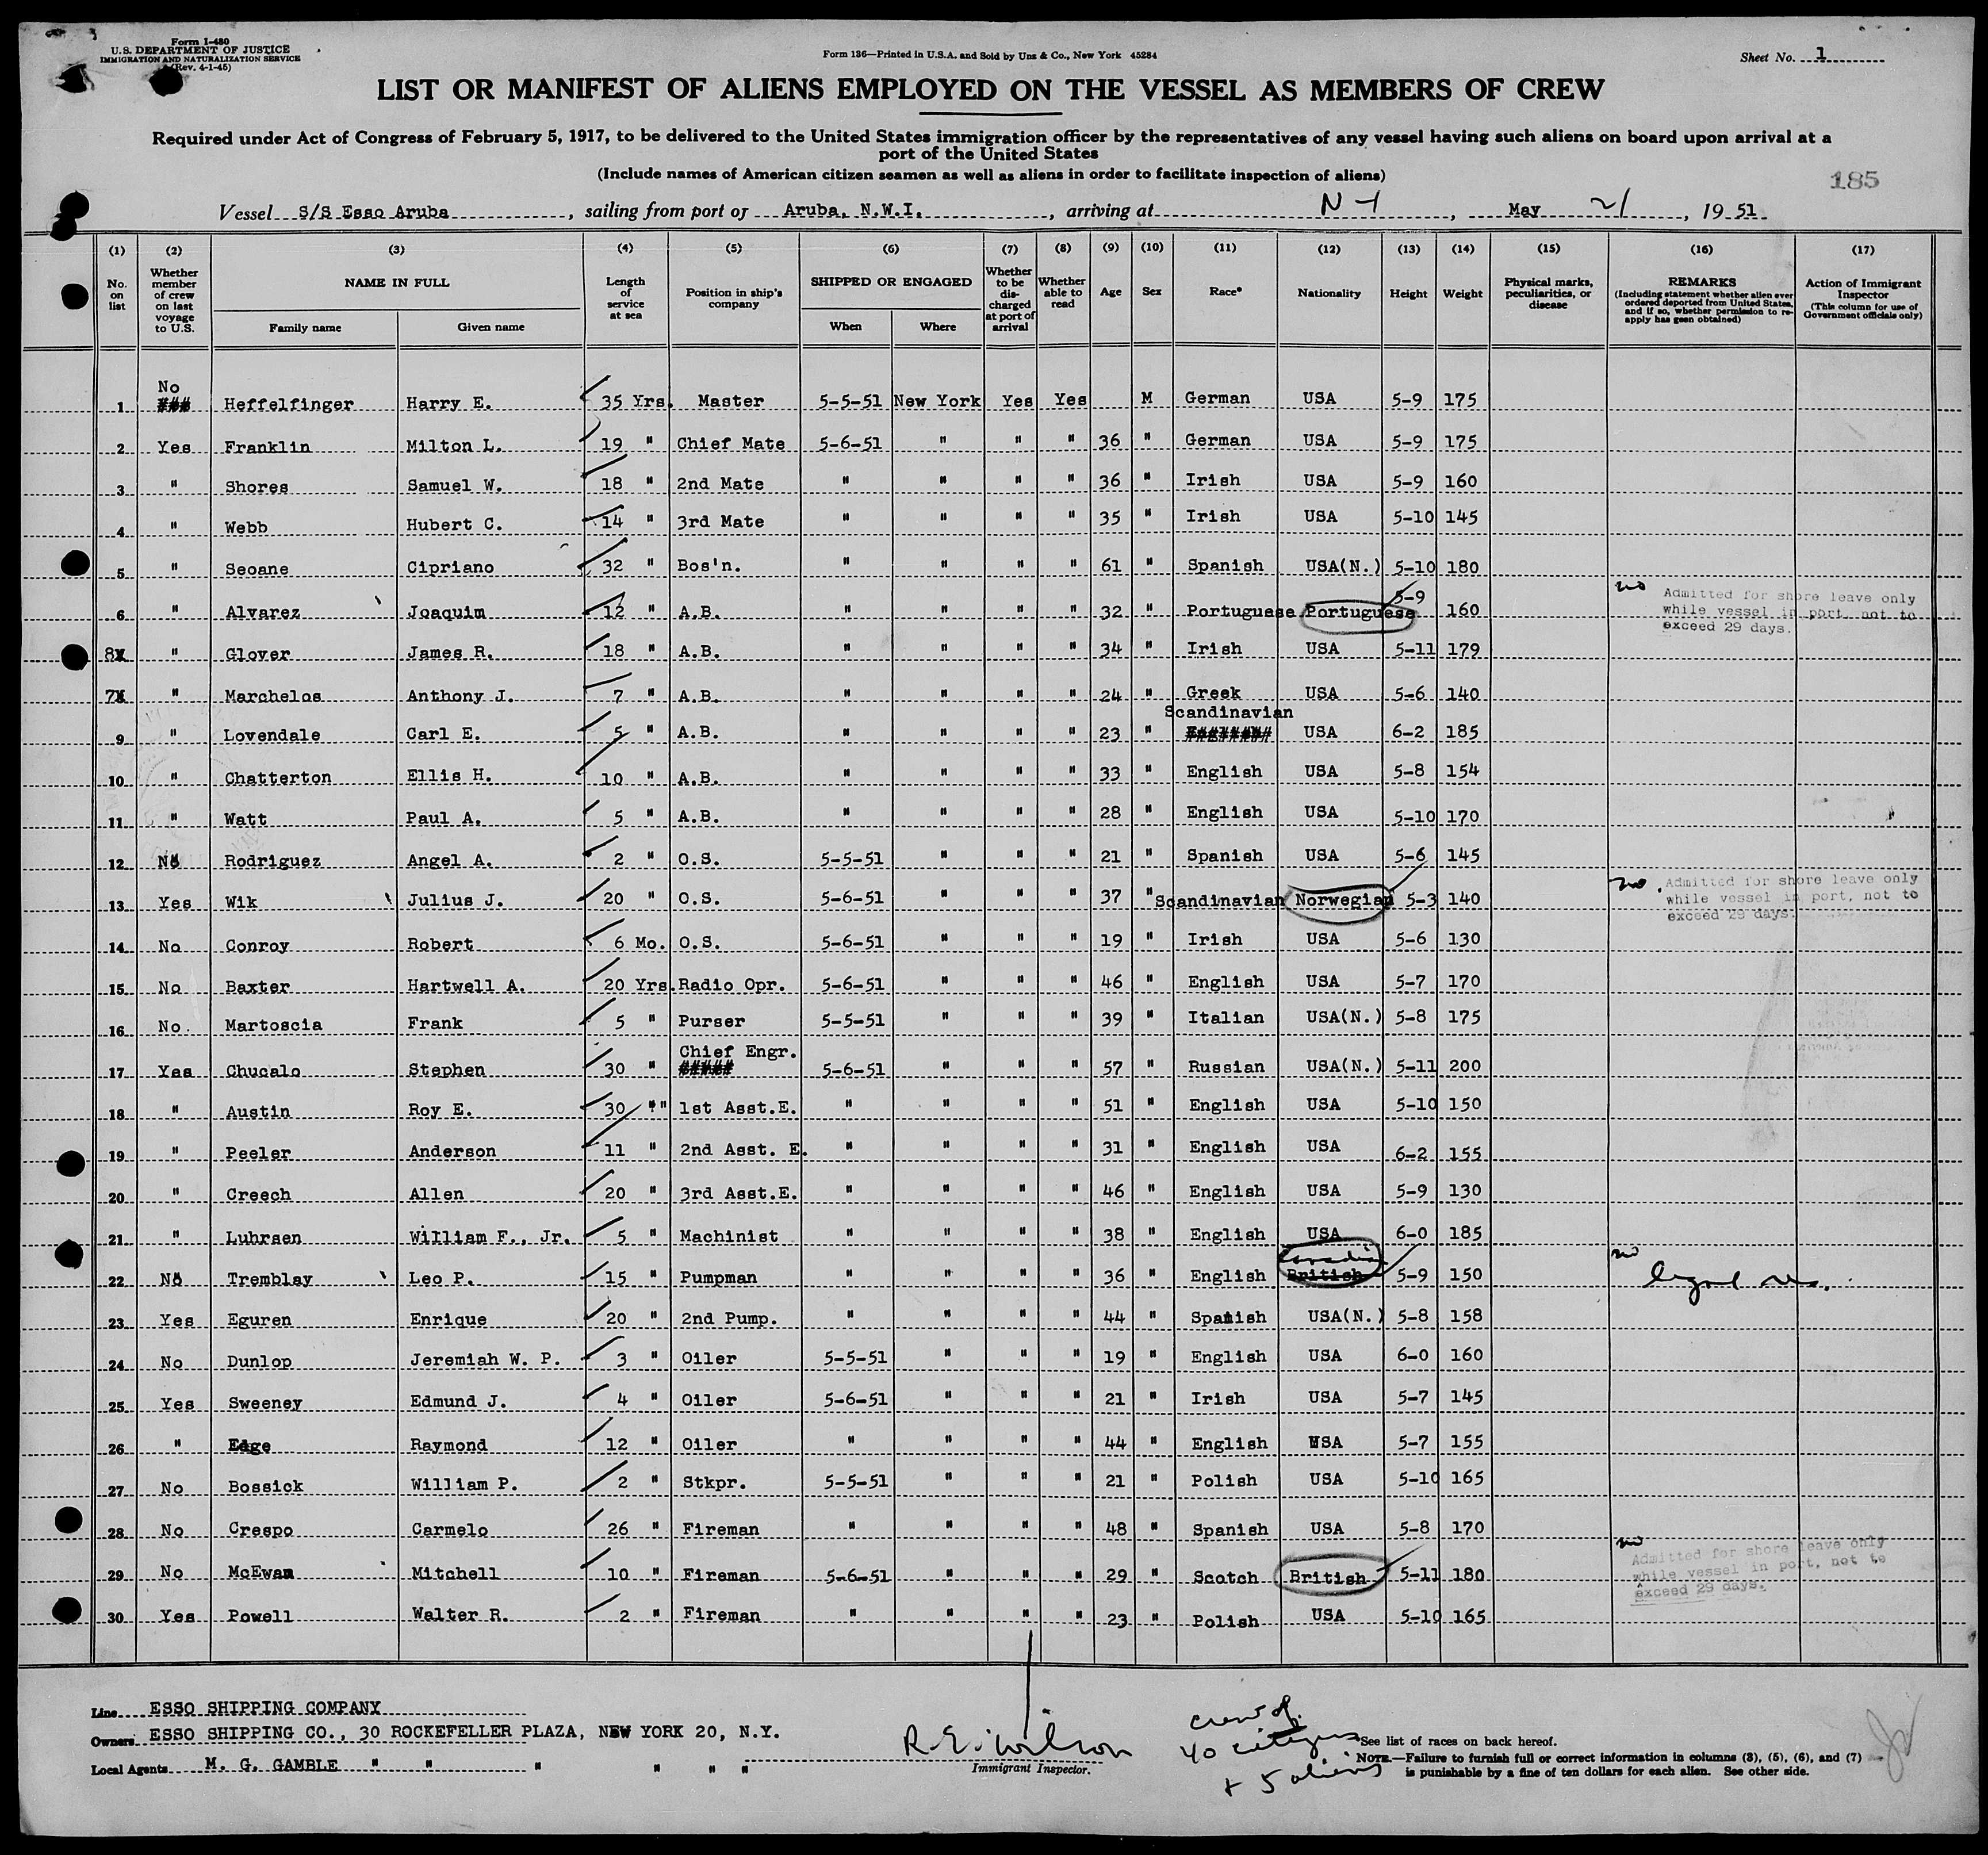 Form I-480
U.S. DEPARTMENT OF JUSTICE
IMMIGRATION AND NATURALIZATION SERVICE
(Rev. 4-1-45)
Form 136—Printed in U.S.A. and Sold by Unz & Co., New York 45284
Sheet No. 1
LIST OR MANIFEST OF ALIENS EMPLOYED ON THE VESSEL AS MEMBERS OF CREW
Required under Act of Congress of February 5, 1917, to be delivered to the United States immigration officer by the representatives of any vessel having such aliens on board upon arrival at a
port of the United States
(Include names of American citizen seamen as well as aliens in order to facilitate inspection of aliens)
185
Vessel S/S Esso Aruba, sailing from port of Aruba, N.W.I., arriving at N-Y, May 21, 1951
(1) (2) (3) (4) (5) (6) (7) (8) (9) (10) (11) (12) (13) (14) (15) (16) (17)
No. on list
Whether member of crew on last voyage to U.S.
NAME IN FULL
Family name Given name
Length of service at sea
Position in ship's company
SHIPPED OR ENGAGED
When Where
Whether to be discharged at port of arrival
Whether able to read
Age
Sex
Race*
Nationality
Height
Weight
Physical marks, peculiarities, or disease
REMARKS
(Including statement whether alien ever ordered deported from United States, and if so, whether permission to re-apply has been obtained)
Action of Immigrant Inspector
(This column for use of Government officials only)
1 No ### Heffelfinger Harry E. 35 Yrs. Master 5-5-51 New York Yes Yes M German USA 5-9 175
2 Yes Franklin Milton L. 19 " Chief Mate 5-6-51 " " " 36 " German USA 5-9 175
3 " Shores Samuel W. 18 " 2nd Mate " " " " 36 " Irish USA 5-9 160
4 " Webb Hubert C. 14 " 3rd Mate " " " " 35 " Irish USA 5-10 145
5 " Seoane Cipriano 32 " Bos'n. " " " " 61 " Spanish USA(N.) 5-10 180
6 " Alvarez Joaquim 12 " A.B. " " " " 32 " Portuguese Portuguese 5-9 160 no Admitted for shore leave only
while vessel in port, not to
exceed 29 days.
8 " Glover James R. 18 " A.B. " " " " 34 " Irish USA 5-11 179
7 " Marchelos Anthony J. 7 " A.B. " " " " 24 " Greek USA 5-6 140
9 " Lovendale Carl E. 5 " A.B. " " " " 23 " Scandinavian ######## USA 6-2 185
10 " Chatterton Ellis H. 10 " A.B. " " " " 33 " English USA 5-8 154
11 " Watt Paul A. 5 " A.B. " " " " 28 " English USA 5-10 170
12 No Rodriguez Angel A. 2 " O.S. 5-5-51 " " " 21 " Spanish USA 5-6 145
13 Yes Wik Julius J. 20 " O.S. 5-6-51 " " " 37 " Scandinavian Norwegian 5-3 140 no Admitted for shore leave only
while vessel in port, not to
exceed 29 days.
14 No Conroy Robert 6 Mo. O.S. 5-6-51 " " " 19 " Irish USA 5-6 130
15 No Baxter Hartwell A. 20 Yrs. Radio Opr. 5-6-51 " " " 46 " English USA 5-7 170
16 No Martoscia Frank 5 " Purser 5-5-51 " " " 39 " Italian USA(N.) 5-8 175
17 Yes Chucalo Stephen 30 " Chief Engr. ##### 5-6-51 " " " 57 " Russian USA(N.) 5-11 200
18 " Austin Roy E. 30 " 1st Asst.E. " " " " 51 " English USA 5-10 150
19 " Peeler Anderson 11 " 2nd Asst. E. " " " " 31 " English USA 6-2 155
20 " Creech Allen 20 " 3rd Asst.E. " " " " 46 " English USA 5-9 130
21 " Luhrsen William F., Jr. 5 " Machinist " " " " 38 " English USA 6-0 185
22 No Tremblay Leo P. 15 " Pumpman " " " " 36 " English Canadian British 5-9 150 no legal res.
23 Yes Eguren Enrique 20 " 2nd Pump. " " " " 44 " Spanish USA(N.) 5-8 158
24 No Dunlop Jeremiah W. P. 3 " Oiler 5-5-51 " " " 19 " English USA 6-0 160
25 Yes Sweeney Edmund J. 4 " Oiler 5-6-51 " " " 21 " Irish USA 5-7 145
26 " Edge Raymond 12 " Oiler " " " " 44 " English USA 5-7 155
27 No Bossick William P. 2 " Stkpr. 5-5-51 " " " 21 " Polish USA 5-10 165
28 No Crespo Carmelo 26 " Fireman " " " " 48 " Spanish USA 5-8 170
29 No McEwan Mitchell 10 " Fireman 5-6-51 " " " 29 " Scotch British 5-11 180 no Admitted for shore leave only
while vessel in port, not to
exceed 29 days.
30 Yes Powell Walter R. 2 " Fireman " " " " 23 " Polish USA 5-10 165
Line ESSO SHIPPING COMPANY
Owners ESSO SHIPPING CO., 30 ROCKEFELLER PLAZA, NEW YORK 20, N.Y.
Local Agents M. G. GAMBLE " " " " " "
R. E. Wilson
Immigrant Inspector.
crew of
40 citizens
+ 5 aliens
*See list of races on back hereof.
NOTE.—Failure to furnish full or correct information in columns (3), (5), (6), and (7)
is punishable by a fine of ten dollars for each alien. See other side.